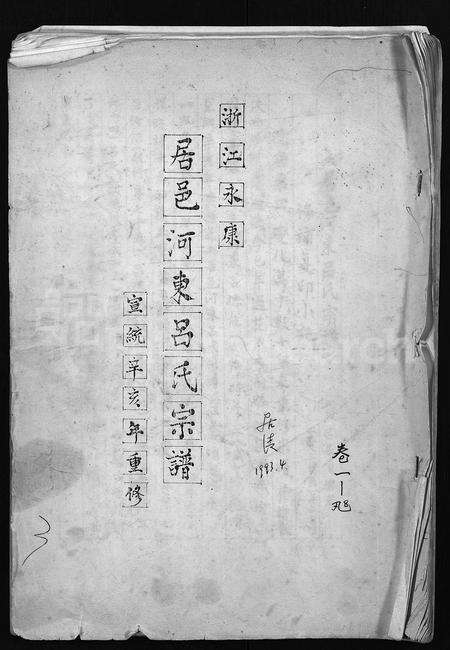 浙江永康
居邑河東呂氏宗譜
宣統辛亥年重修
1993.4.
卷一